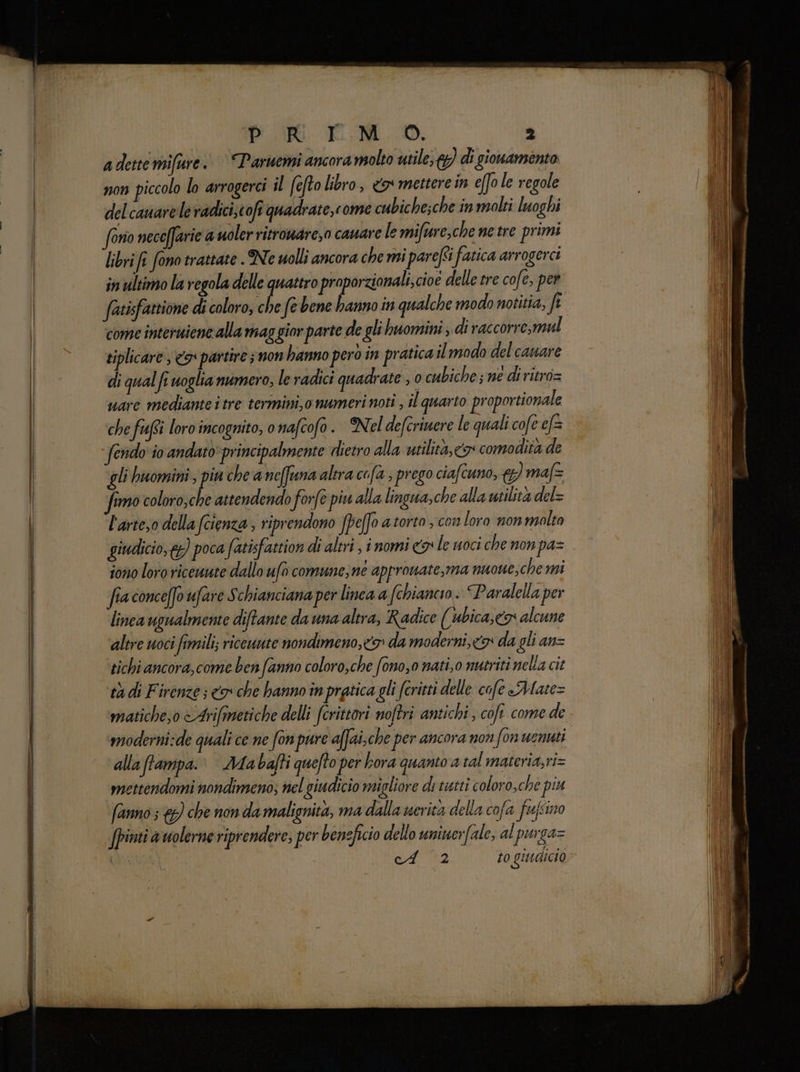 P R I M O. 2
a dette miſure. Paruemi ancora molto utile, & di giouamento
non piccolo lo arrogerci il ſeſto libro, & mettere in eſſo le regole
del cauare le radici, coſi quadrate, come cubiche; che in molti luoghi
ſono neceſſarie a uoler ritrouare, o cauare le miſure, che ne tre primi
libri ſi ſono trattate. Ne uolli ancora che mi pareſſi fatica arrogerci
in ultimo la regola delle quattro proporzionali, cioè delle tre coſe, per
ſatisfattione di coloro, che ſe bene hanno in qualche modo notitia, ſi
come interuiene alla maggior parte de gli huomini, di raccorre, mul
tiplicare, & partire; non hanno però in pratica il modo del cauare
di qual ſi uoglia numero, le radici quadrate, o cubiche; nè di ritro=
uare mediante i tre termini, o numeri noti, il quarto proportionale
che fuſſi loro incognito, o naſcoſo. Nel deſcriuere le quali coſe eſ=
ſendo io andato principalmente dietro alla utilità, & comodità de
gli huomini, piu che a neſſuna altra coſa, prego ciaſcuno, & maſ=
ſimo coloro, che attendendo forſe piu alla lingua, che alla utilità del=
l'arte, o della ſcienza, riprendono ſpeſſo a torto, con loro non molto
giudicio, & poca ſatisfattion di altri, i nomi & le uoci che non pa=
iono loro riceuute dallo uſo comune, nè approuate, ma nuoue, che mi
ſia conceſſo uſare Schianciana per linea a ſchiancio. Paralella per
linea ugualmente diſtante da una altra, Radice Cubica, & alcune
altre uoci ſimili; riceuute nondimeno, & da moderni, & da gli an=
tichi ancora, come ben ſanno coloro, che ſono, o nati, o nutriti nella cit
tà di Firenze; & che hanno in pratica gli ſcritti delle coſe Mate=
matiche, o Ariſmetiche delli ſcrittori noſtri antichi, coſi come de
moderni: de quali ce ne ſon pure aſſai, che per ancora non ſon uenuti
alla ſtampa. Ma baſti queſto per hora quanto a tal materia, ri=
mettendomi nondimeno, nel giudicio migliore di tutti coloro, che piu
ſanno; & che non da malignità, ma dalla uerità della coſa fuſsino
ſpinti a uolerne riprendere, per beneficio dello uniuerſale, al purga=
A 2 to giudicio